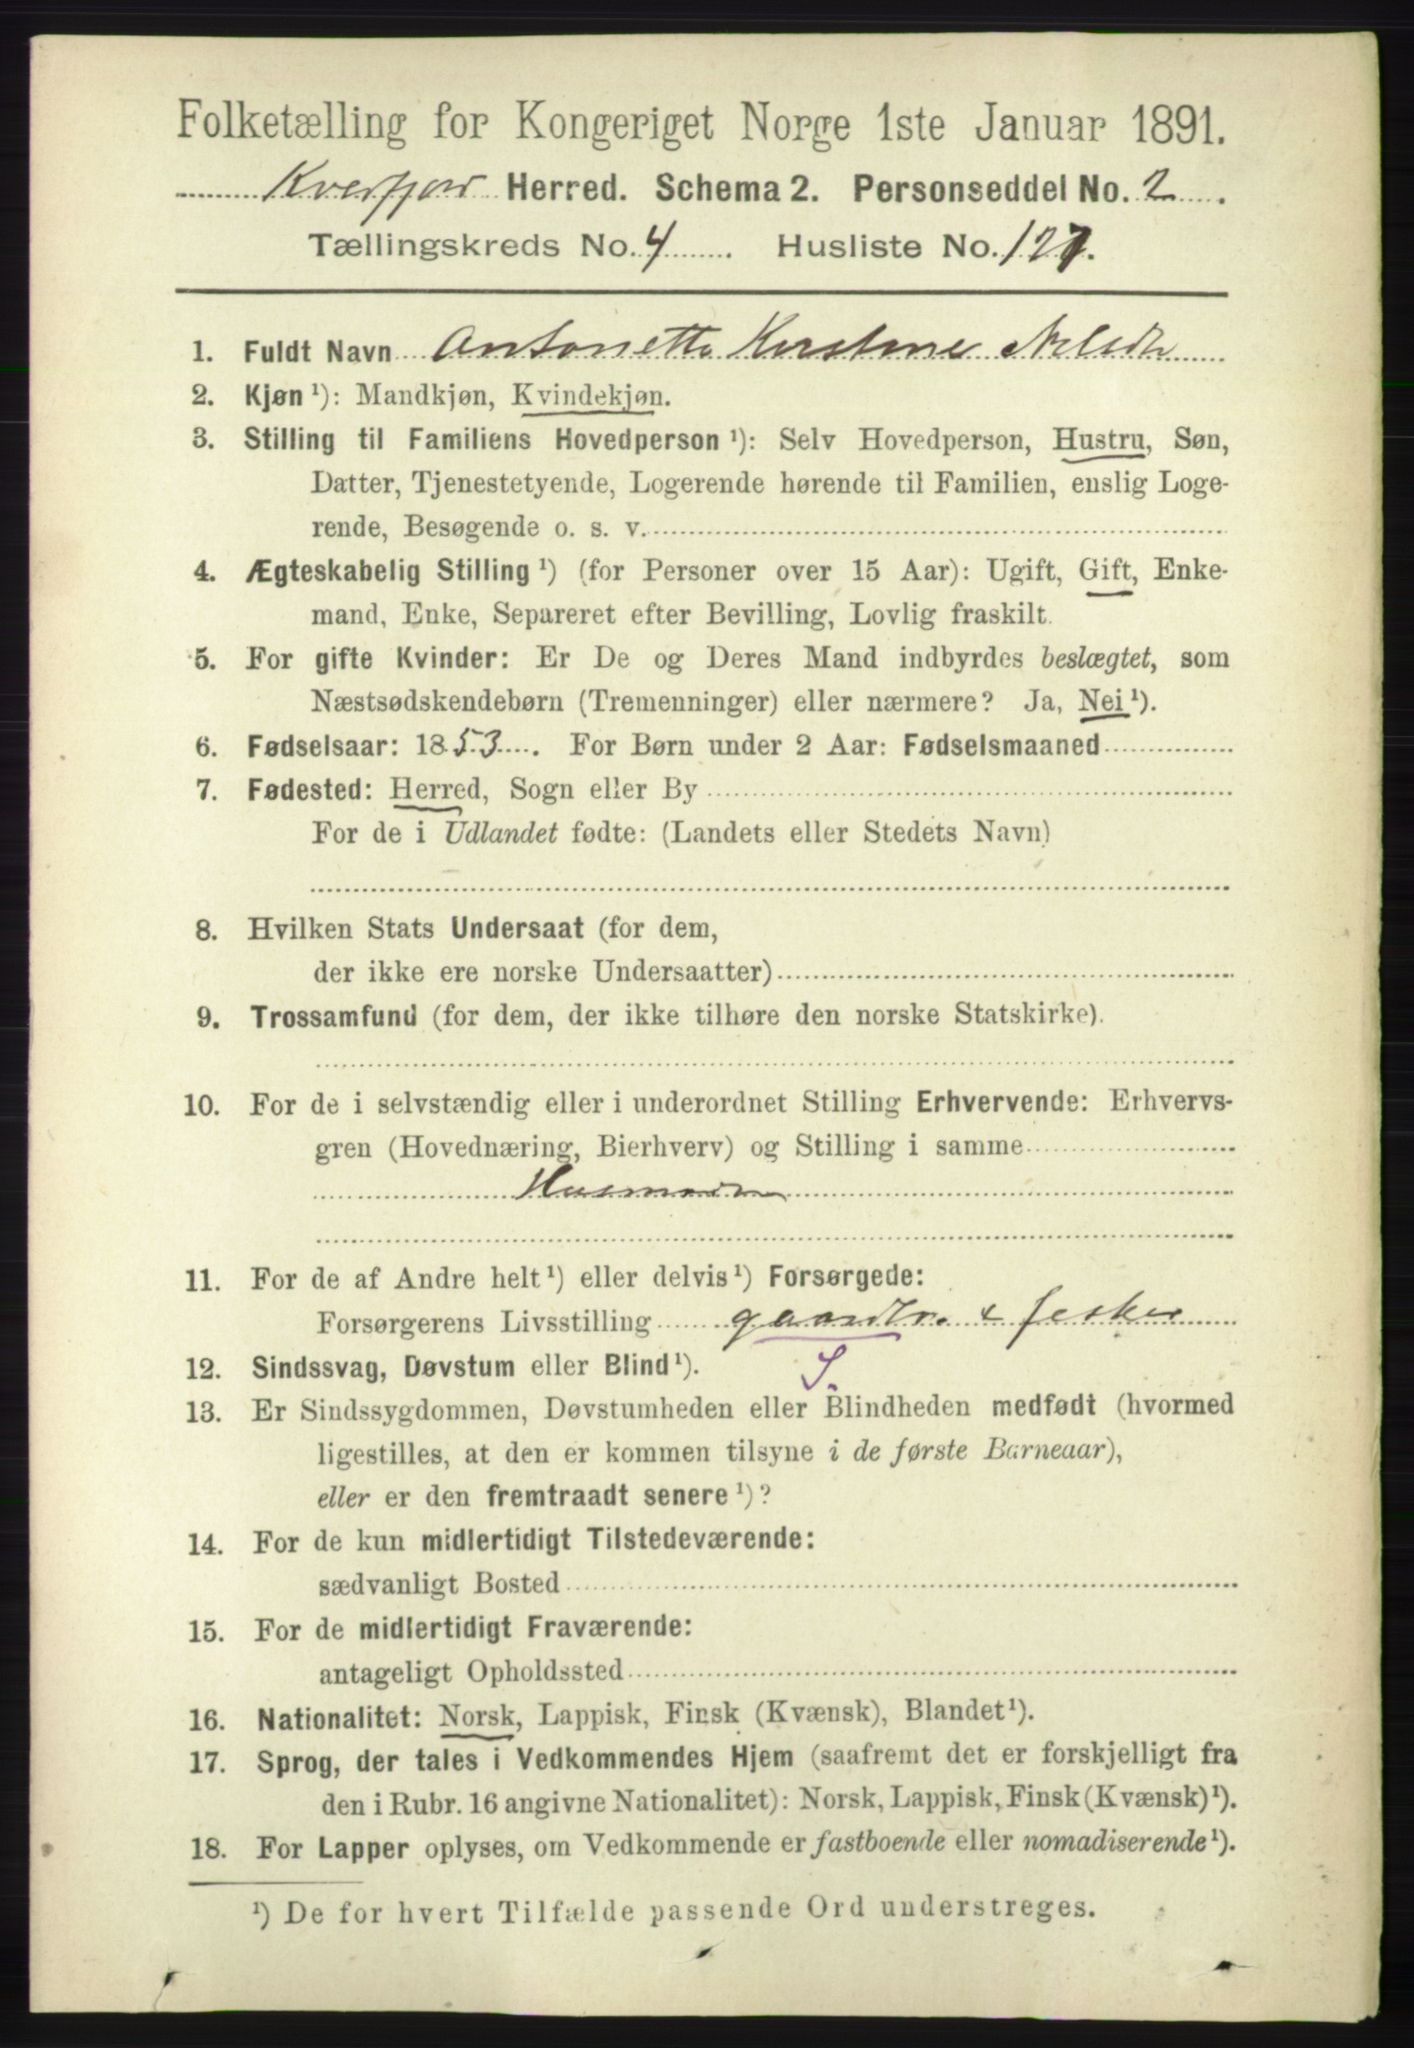 Folketælling for Kongeriget Norge 1ste Januar 1891.
Kvæfjord Herred. Schema 2. Personseddel No. 2
Tællingskreds No. 4 Husliste No. 127.
1. Fuldt Navn Antonette Kirstine Nilsdtr
2. Kjøn ¹): Mandkjøn, Kvindekjøn.
3. Stilling til Familiens Hovedperson ¹): Selv Hovedperson, Hustru, Søn,
Datter, Tjenestetyende, Logerende hørende til Familien, enslig Loge-
rende, Besøgende o. s. v.
4. Ægteskabelig Stilling ¹) (for Personer over 15 Aar): Ugift, Gift, Enke-
mand, Enke, Separeret efter Bevilling, Lovlig fraskilt.
5. For gifte Kvinder: Er De og Deres Mand indbyrdes beslægtet, som
Næstsødskendebørn (Tremenninger) eller nærmere? Ja, Nei ¹).
6. Fødselsaar: 1853. For Børn under 2 Aar: Fødselsmaaned
7. Fødested: Herred, Sogn eller By
For de i Udlandet fødte: (Landets eller Stedets Navn)
8. Hvilken Stats Undersaat (for dem,
der ikke ere norske Undersaatter)
9. Trossamfund (for dem, der ikke tilhøre den norske Statskirke).
10. For de i selvstændig eller i underordnet Stilling Erhvervende: Erhvervs-
gren (Hovednæring, Bierhverv) og Stilling i samme
Husmoder
11. For de af Andre helt ¹) eller delvis ¹) Forsørgede:
Forsørgerens Livsstilling gaardbr. & fisker
12. Sindssvag, Døvstum eller Blind ¹). S.
13. Er Sindssygdommen, Døvstumheden eller Blindheden medfødt (hvormed
ligestilles, at den er kommen tilsyne i de første Barneaar),
eller er den fremtraadt senere ¹)?
14. For de kun midlertidigt Tilstedeværende:
sædvanligt Bosted
15. For de midlertidigt Fraværende:
antageligt Opholdssted
16. Nationalitet: Norsk, Lappisk, Finsk (Kvænsk), Blandet ¹).
17. Sprog, der tales i Vedkommendes Hjem (saafremt det er forskjelligt fra
den i Rubr. 16 angivne Nationalitet): Norsk, Lappisk, Finsk (Kvænsk) ¹).
18. For Lapper oplyses, om Vedkommende er fastboende eller nomadiserende ¹).
¹) De for hvert Tilfælde passende Ord understreges.